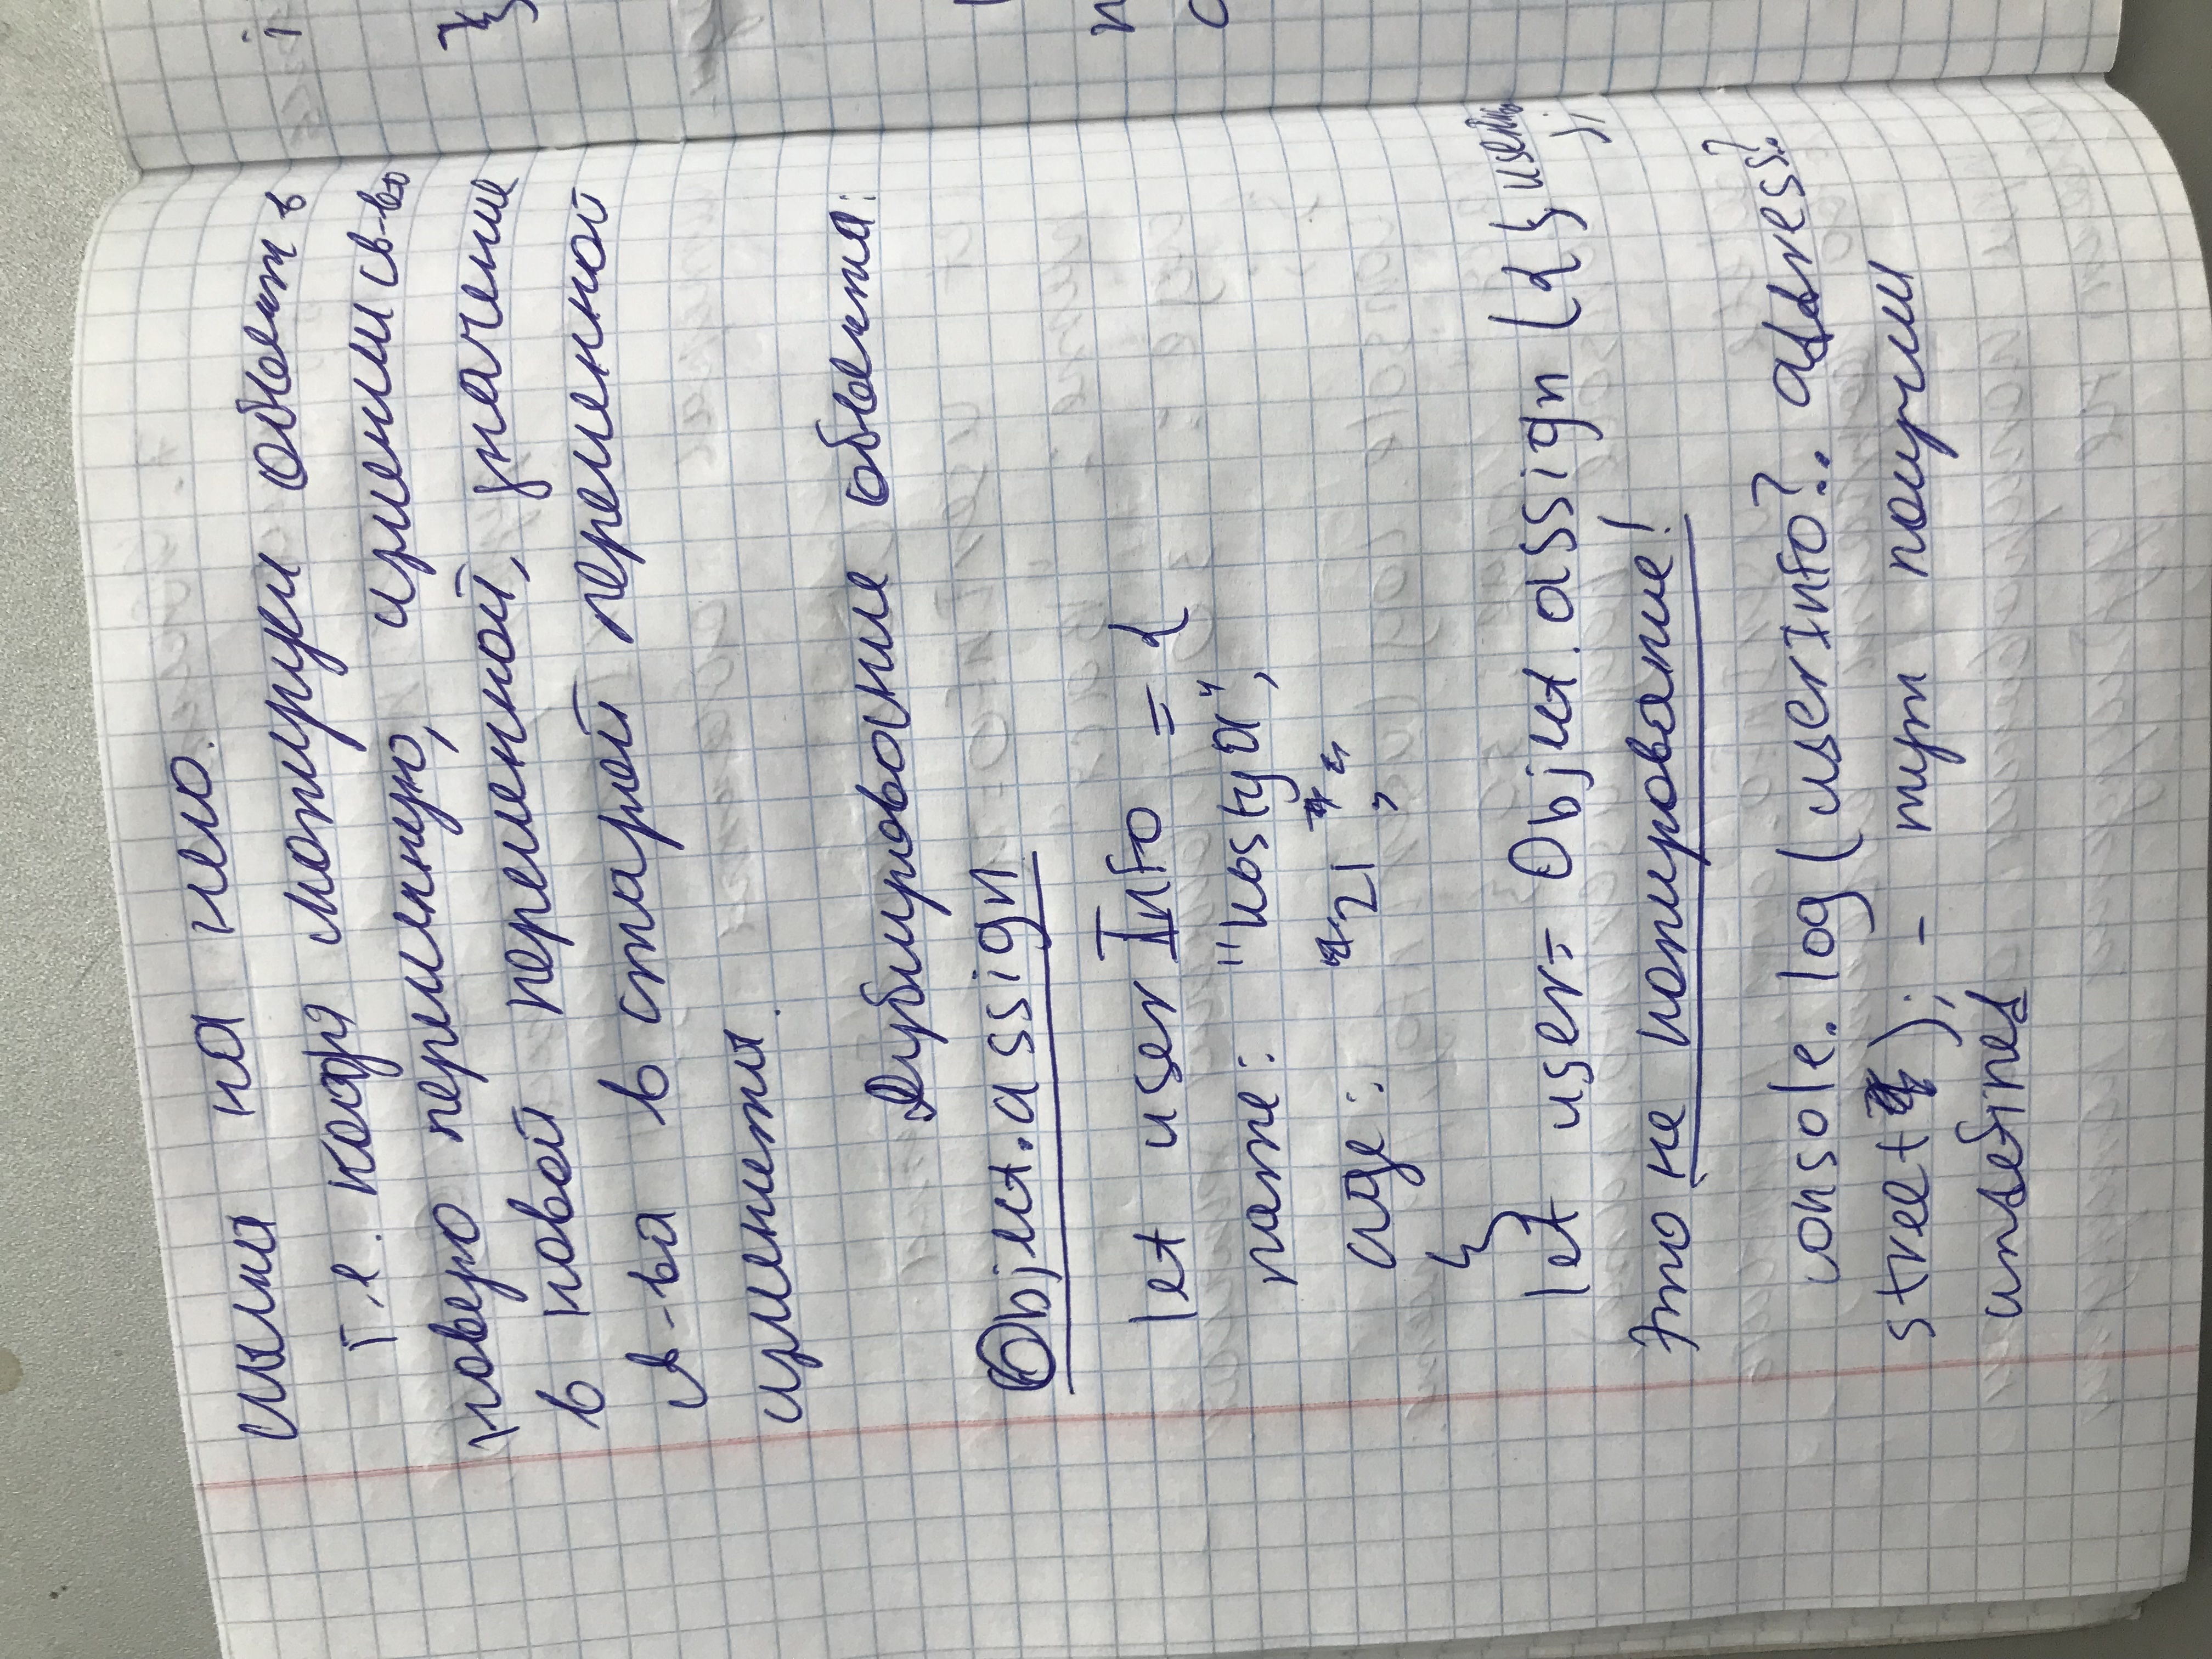 сылка на него.
Т.е. когда копируем объект в
новую переменную, изменим св-во
в новой переменной, значение
св-ва в старой переменной
изменится.
Дублирование объекта:
Object.assign
let userInfo = {
name: "Kostya",
age: 21,
}
let user = Object.assign ({}, userInfo
);
Это не копирование!
console.log(userInfo?.address?
street);  - тут получим
undefined